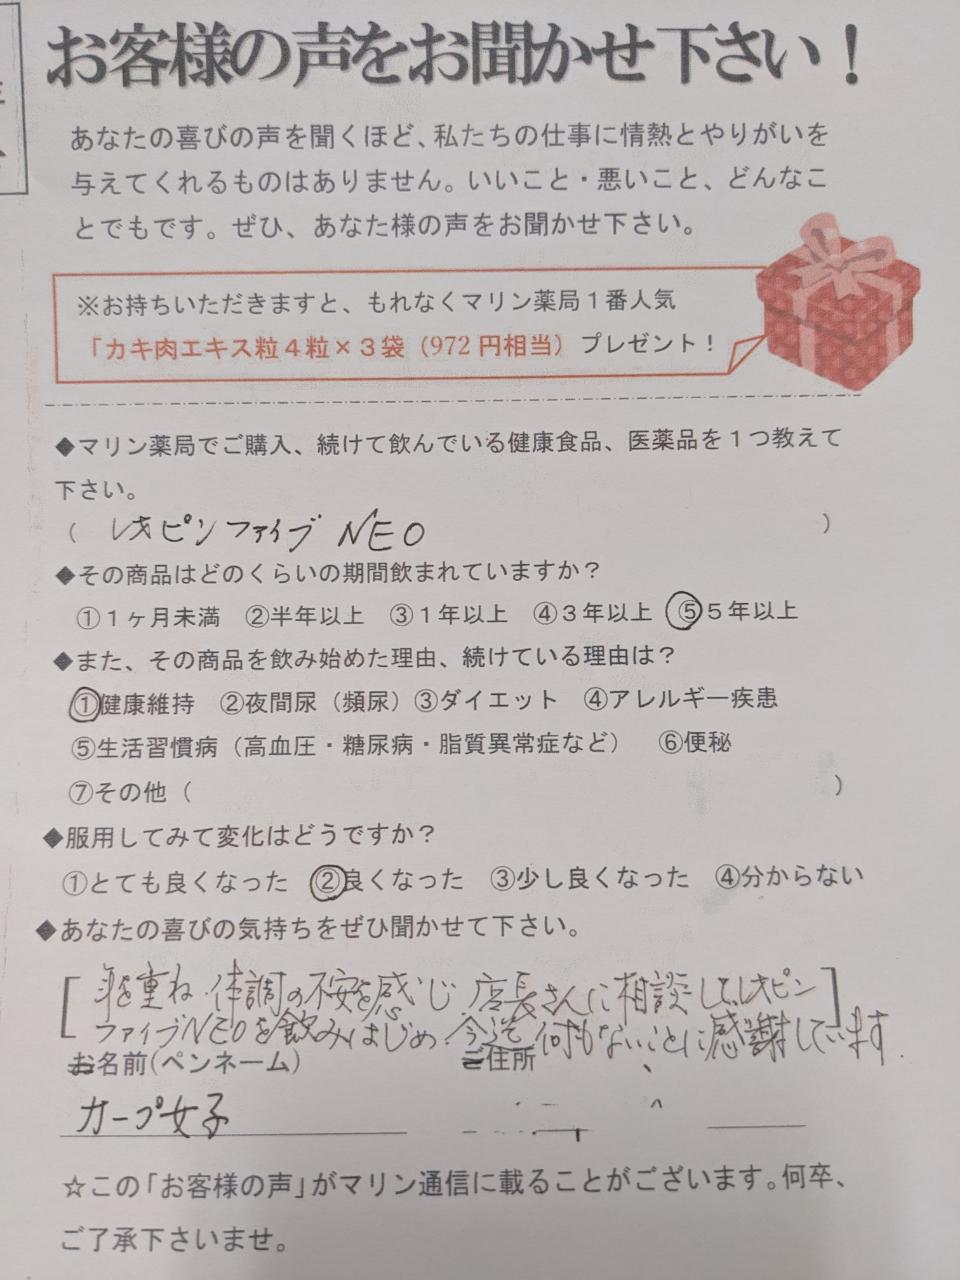 お客様の声をお聞かせ下さい！
あなたの喜びの声を聞くほど、私たちの仕事に情熱とやりがいを
与えてくれるものはありません。いいこと・悪いこと、どんなこ
とでもです。ぜひ、あなた様の声をお聞かせ下さい。
※お持ちいただきますと、もれなくマリン薬局１番人気
「カキ肉エキス粒４粒×３袋（972 円相当）プレゼント！
◆マリン薬局でご購入、続けて飲んでいる健康食品、医薬品を１つ教えて
下さい。
（ レオピンファイブ NEO ）
◆その商品はどのくらいの期間飲まれていますか？
①１ヶ月未満 ②半年以上 ③１年以上 ④３年以上 ⑤５年以上
◆また、その商品を飲み始めた理由、続けている理由は？
①健康維持 ②夜間尿（頻尿）③ダイエット ④アレルギー疾患
⑤生活習慣病（高血圧・糖尿病・脂質異常症など） ⑥便秘
⑦その他（ ）
◆服用してみて変化はどうですか？
①とても良くなった ②良くなった ③少し良くなった ④分からない
◆あなたの喜びの気持ちをぜひ聞かせて下さい。
[ 年を重ね 体調の不安を感じ 店長さんに相談して、レオピン ]
ファイブNEOを飲みはじめ 今迄 何もないことに感謝しています.
お名前（ペンネーム） ご住所
カープ女子
☆この「お客様の声」がマリン通信に載ることがございます。何卒、
ご了承下さいませ。